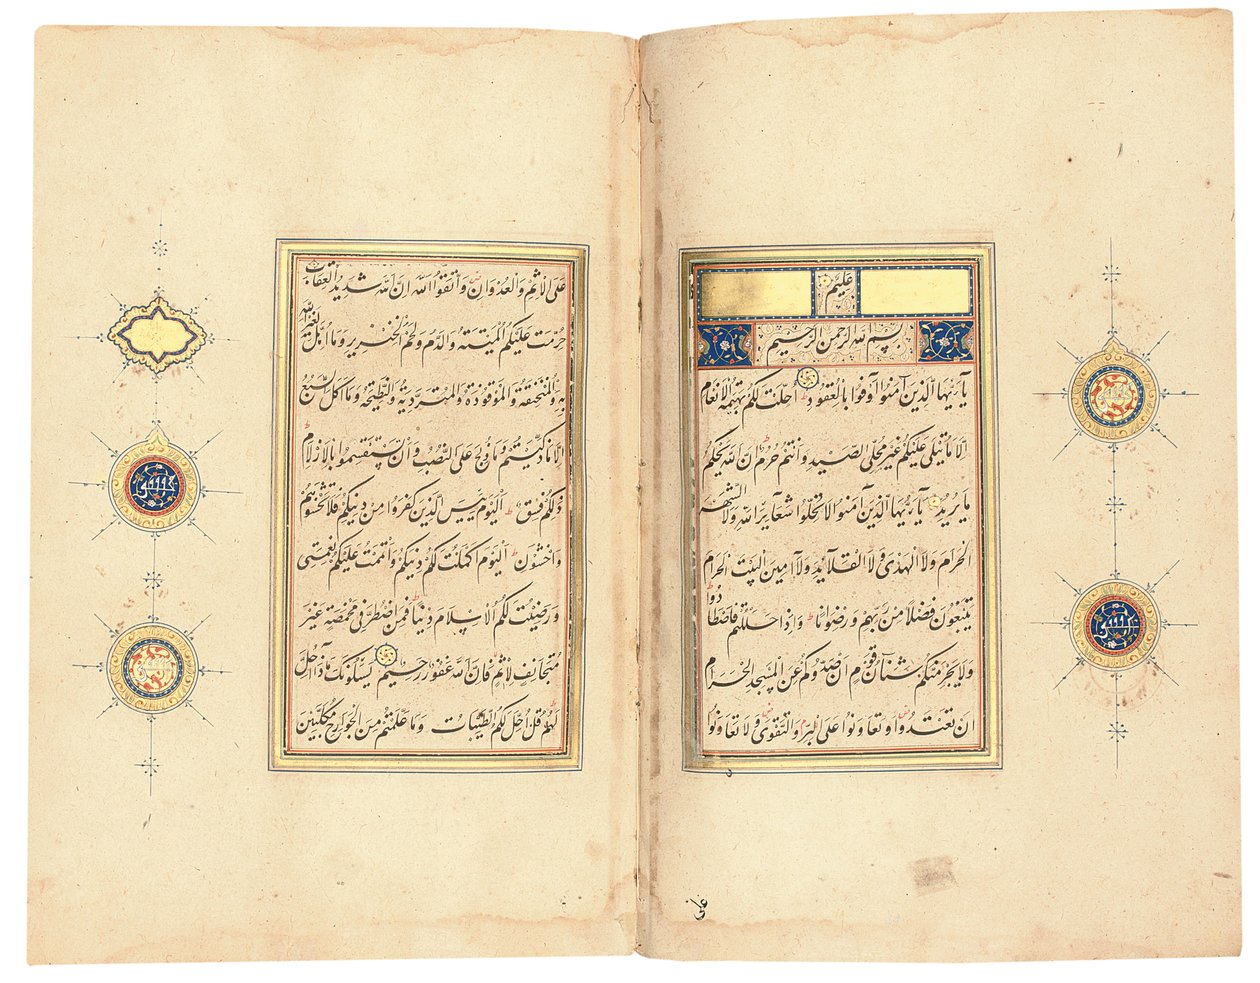 عَلِيمٌ
بِسْمِ اللهِ الرَّحْمٰنِ الرَّحِيمِ
يَآ ءَيُّهَا الَّذِينَ آمَنُوا أَوْفُوا بِالْعُقُودِ أُحِلَّتْ لَكُمْ بَهِيمَةُ الْاَنْعَامِ
اِلَّا مَا يُتْلَى عَلَيْكُمْ غَيْرَ مُحِلِّي الصَّيْدِ وَاَنْتُمْ حُرُمٌ اِنَّ اللهَ يَحْكُمُ
مَا يُرِيدُ يَآ ءَيُّهَا الَّذِينَ آمَنُوا لَا تُحِلُّوا شَعَآئِرَ اللهِ وَلَا الشَّهْرَ
الْحَرَامَ وَلَا الْهَدْىَ وَلَا الْقَلَآئِدَ وَلَا آمِّينَ الْبَيْتَ الْحَرَامَ
يَبْتَغُونَ فَضْلًا مِنْ رَبِّهِمْ وَرِضْوَانًا وَاِذَا حَلَلْتُمْ فَاصْطَادُوا
وَلَا يَجْرِمَنَّكُمْ شَنَآنُ قَوْمٍ اَنْ صَدُّوكُمْ عَنِ الْمَسْجِدِ الْحَرَامِ
اَنْ تَعْتَدُوا وَتَعَاوَنُوا عَلَى الْبِرِّ وَالتَّقْوَى وَلَا تَعَاوَنُوا
على
عَلَى الْاِثْمِ وَالْعُدْوَانِ وَاتَّقُوا اللهَ اِنَّ اللهَ شَدِيدُ الْعِقَابِ
حُرِّمَتْ عَلَيْكُمُ الْمَيْتَةُ وَالدَّمُ وَلَحْمُ الْخِنْزِيرِ وَمَا اُهِلَّ لِغَيْرِ اللهِ
بِهِ وَالْمُنْخَنِقَةُ وَالْمَوْقُوذَةُ وَالْمُتَرَدِّيَةُ وَالنَّطِيحَةُ وَمَا اَكَلَ السَّبُعُ
اِلَّا مَا ذَكَّيْتُمْ وَمَا ذُبِحَ عَلَى النُّصُبِ وَاَنْ تَسْتَقْسِمُوا بِالْاَزْلَامِ
ذٰلِكُمْ فِسْقٌ اَلْيَوْمَ يَئِسَ الَّذِينَ كَفَرُوا مِنْ دِينِكُمْ فَلَا تَخْشَوْهُمْ
وَاخْشَوْنِ اَلْيَوْمَ اَكْمَلْتُ لَكُمْ دِينَكُمْ وَاَتْمَمْتُ عَلَيْكُمْ نِعْمَتِي
وَرَضِيتُ لَكُمُ الْاِسْلَامَ دِينًا فَمَنِ اضْطُرَّ فِي مَخْمَصَةٍ غَيْرَ
مُتَجَانِفٍ لِاِثْمٍ فَاِنَّ اللهَ غَفُورٌ رَحِيمٌ يَسْئَلُونَكَ مَاذَآ اُحِلَّ
لَهُمْ قُلْ اُحِلَّ لَكُمُ الطَّيِّبَاتُ وَمَا عَلَّمْتُمْ مِنَ الْجَوَارِحِ مُكَلِّبِينَ